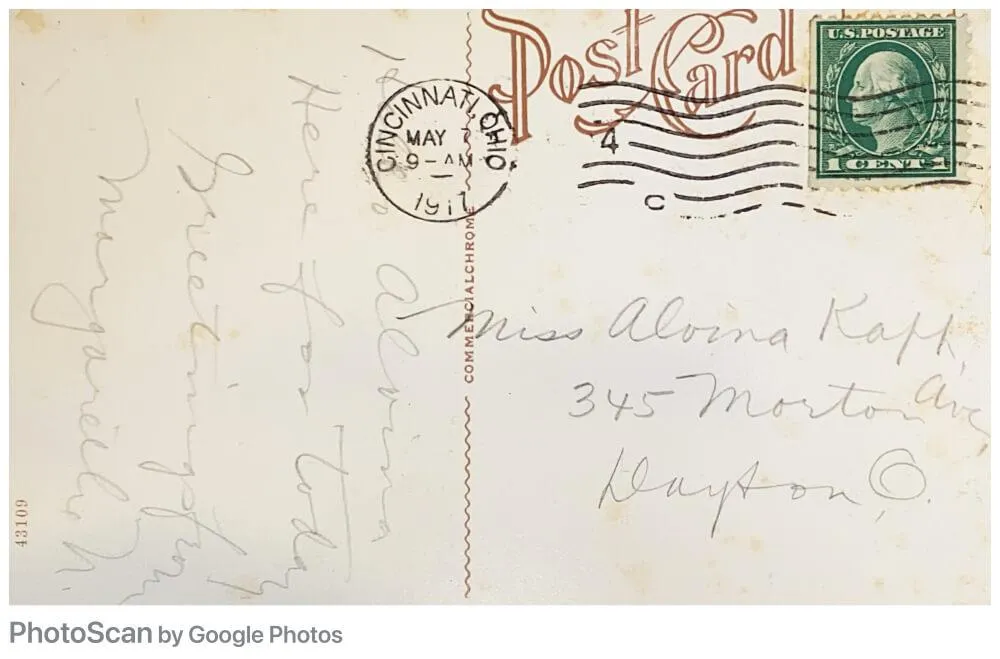 Post Card
U.S. POSTAGE
1 CENT 1
CINCINNATI, OHIO
MAY 7
9-AM
1917
4
C
COMMERCIALCHROME
43109
Hello Alvina
Here for today
Greetings from
Margaret N.
Miss Alvina Kapp,
345 Morton Ave,
Dayton, O.
PhotoScan by Google Photos